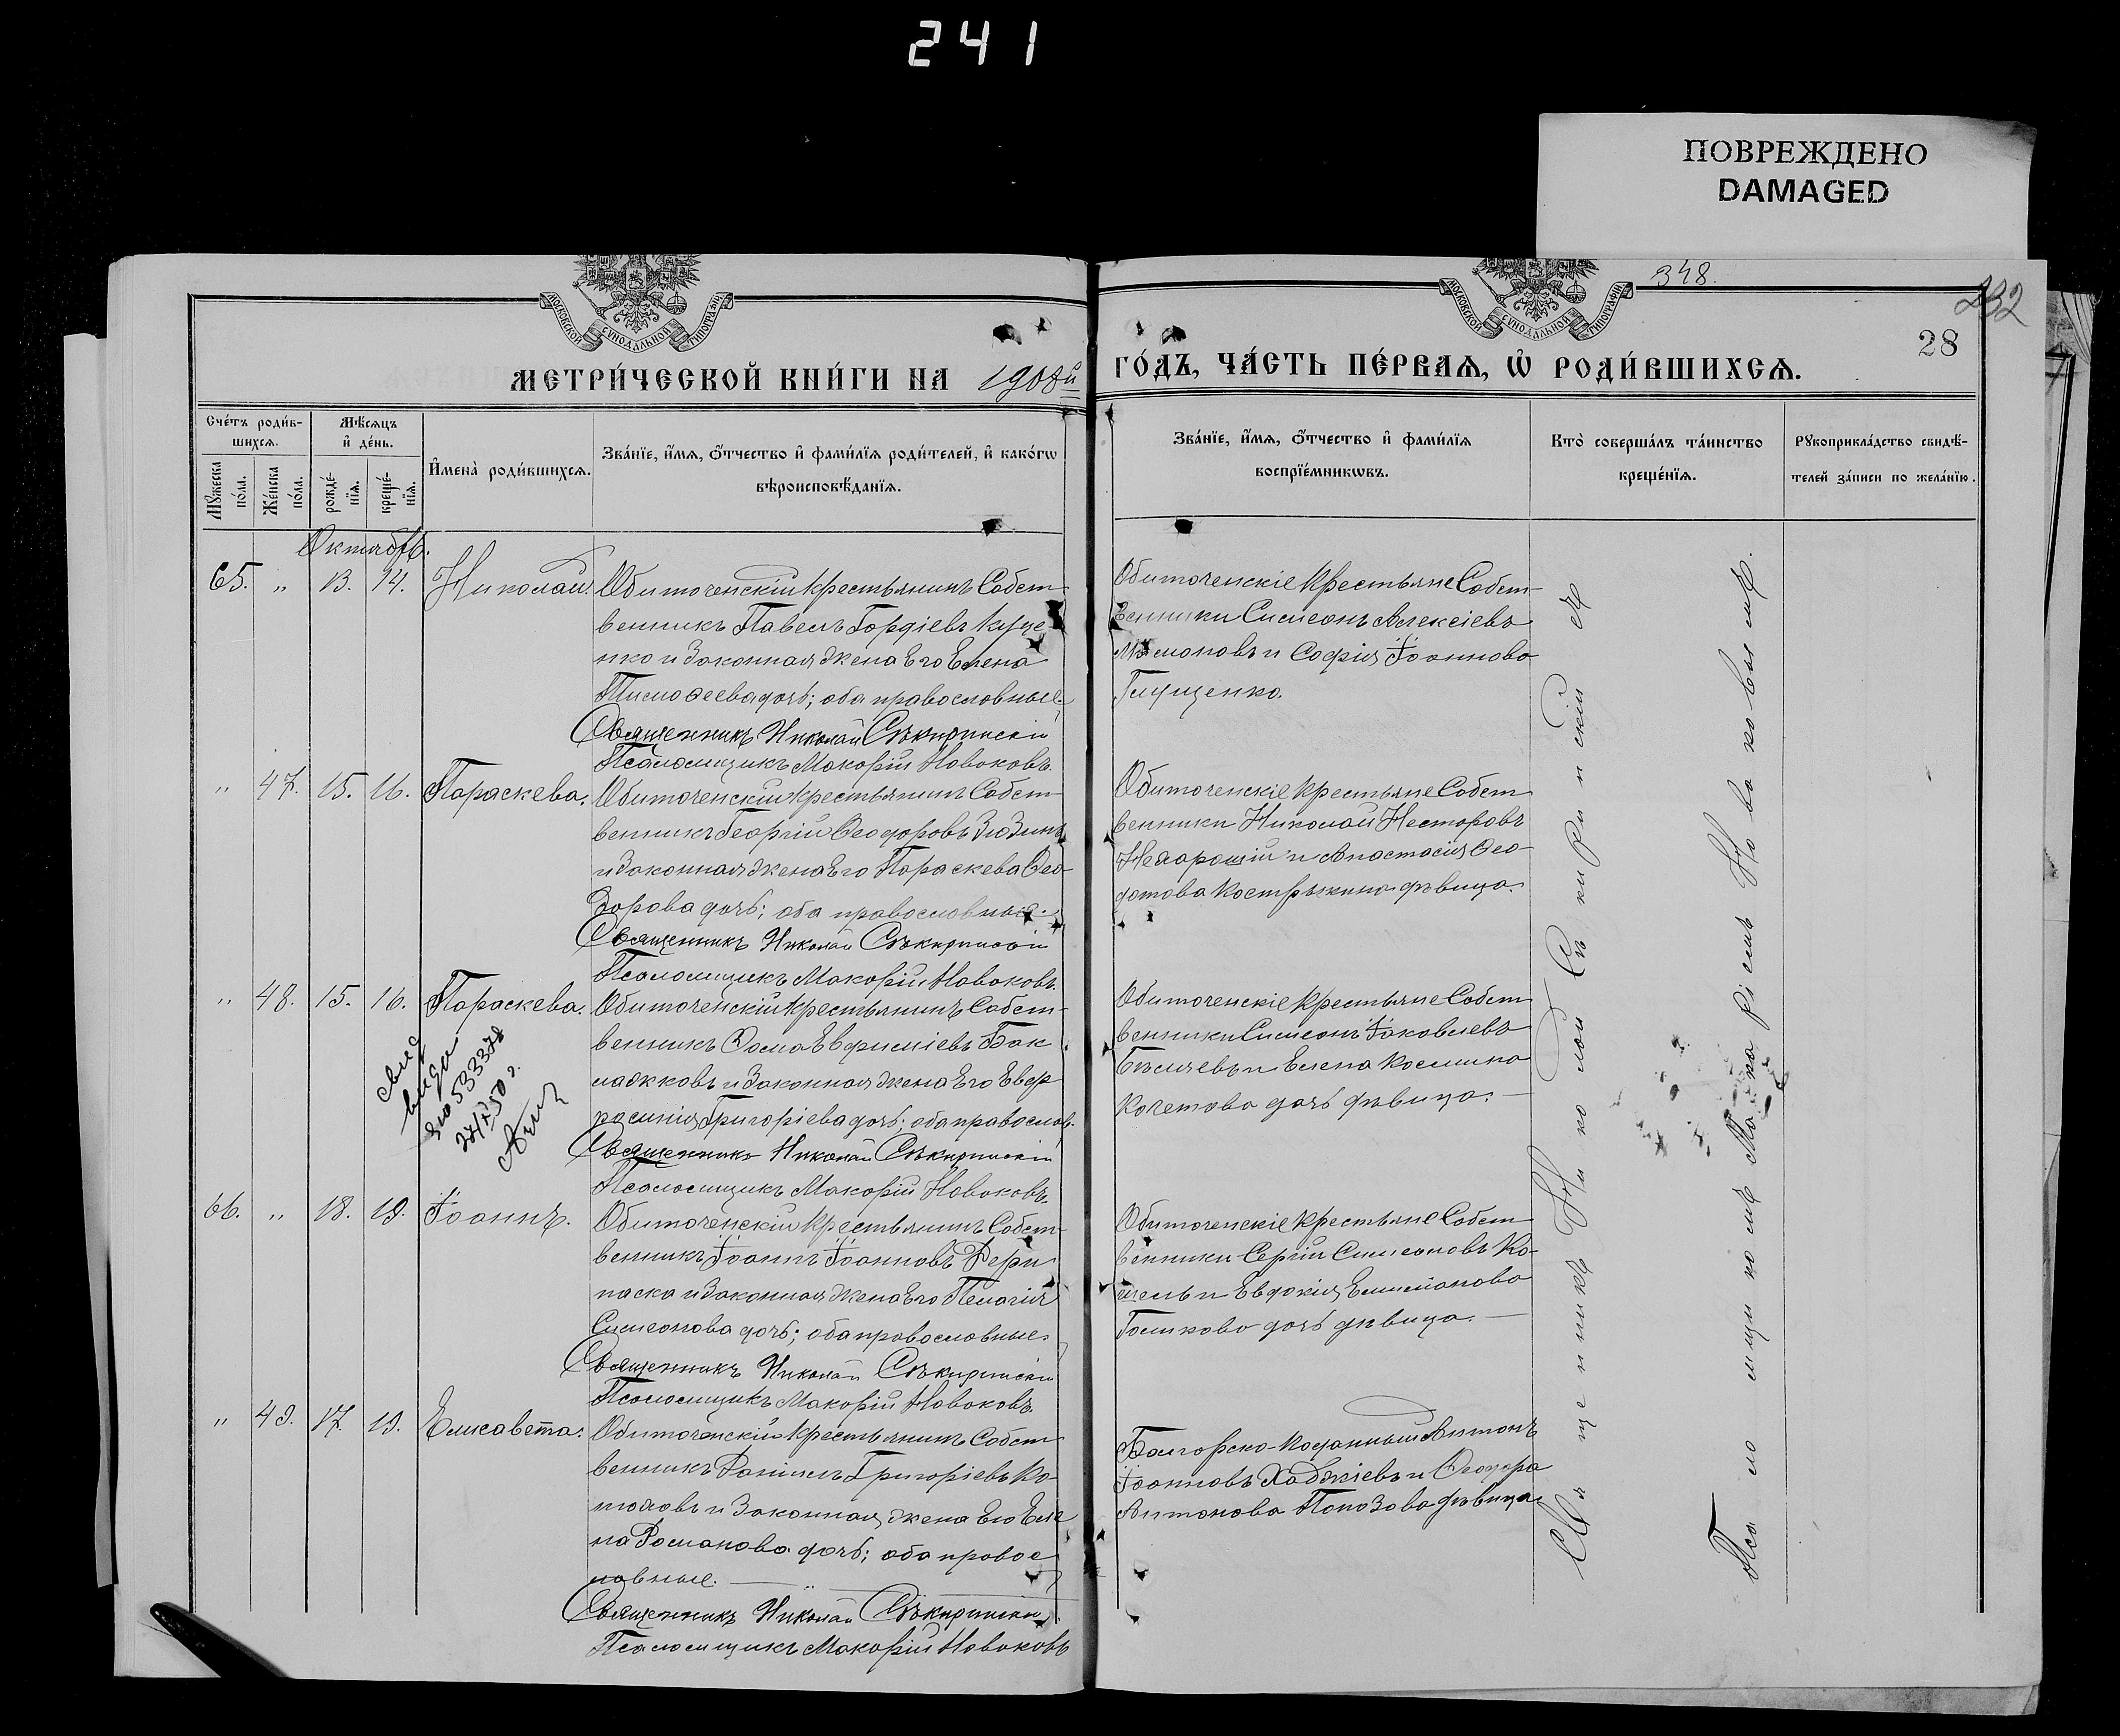 241
ПОВРЕЖДЕНО
DAMAGED
МОСКОВСКОЙ СѴНОДАЛЬНОЙ ТИПОГРАФІИ
МОСКОВСКОЙ СѴНОДАЛЬНОЙ ТИПОГРАФІИ
348.
232
28
МЕТРИ́ЧЕСКОЙ КНИ́ГИ НА 1908й ГО́ДЪ, ЧА́СТЬ ПЕ́РВАѦ, Ѽ РОДИ́ВШИХСѦ.
Сче́тъ роди́в-
шихсѧ.
Мꙋ́жеска по́ла.
Же́нска по́ла.
Мѣ́сѧцъ
и҆ де́нь.
рожде́-
нїѧ.
креще́-
нїѧ.
И҆мена̀ роди́вшихсѧ.
Зва́нїе, и҆́мѧ, ѻ҆́тчество и҆ фами́лїѧ роди́телей, и҆ како́гѡ
вѣроисповѣ́данїѧ.
Зва́нїе, и҆́мѧ, ѻ҆́тчество и҆ фами́лїѧ
воспрїе́мникѡвъ.
Кто̀ соверша́лъ та́инство
креще́нїѧ.
Рꙋкоприкла́дство свидѣ́-
телей за́писи по жела́нїю.
Октябрь.
65. „ 13. 14. Николай.
Обиточенскій крестьянинъ Собст-
венникъ Павелъ Гордіевъ Куце-
нко и законная жена его Елена
Тимофеева дочь; оба православные.
Священникъ Николай Сѣкиринскій
Псаломщикъ Макарій Новаковъ.
Обиточенскіе крестьяне Собст-
венники Симеонъ Алексіевъ
и Софія Іоаннова
Глущенко.
„ 47. 15. 16. Параскева.
Обиточенскій крестьянинъ Собст-
венникъ Георгій Ѳеодоровъ Зюзинъ
и законная жена его Параскева Ѳео-
дорова дочь; оба православные.
Священникъ Николай Сѣкиринскій
Псаломщикъ Макарій Новаковъ.
Обиточенскіе крестьяне Собст
венники Николай Несторовъ
Нехарошій и Анастасія Ѳео-
дотова Кострыкина дѣвица.
„ 48. 15. 16. Параскева.
533378
Обиточенскій крестьянинъ Собст-
венникъ Ѳома Евфиміевъ Бак
лажковъ и законная жена его Евф
росинія Григоріева дочь; оба православ.
Священникъ Николай Сѣкиринскій
Псаломщикъ Макарій Новаковъ.
Обиточенскіе крестьяне Собст
венники Симеонъ Іаковлевъ
Бѣляевъ и Елена Космина
Кочетова дочь дѣвица. —
66. „ 18. 19. Іоаннъ.
Обиточенскій крестьянинъ Собст-
венникъ Іоаннъ Іоанновъ Дери
паска и законная жена его Пелагія
Симеонова дочь; оба православные.
Священникъ Николай Сѣкиринскій
Псаломщикъ Макарій Новаковъ.
Обиточенскіе крестьяне Собст
венники Сергій Симеоновъ Ко-
шель и Евдокія Емилианова
Голикова дочь дѣвица. —
„ 49. 17. 19. Елисавета.
Обиточенскій крестьянинъ Собст
венникъ Даніилъ Григоріевъ Ко-
и законная жена его Еле
на Романова дочь; оба правос
лавные. —
Священникъ Николай Сѣкиринскій
Псаломщикъ Макарій Новаковъ
Антонъ
Іоанновъ Хаджіевъ и Ѳеодора
Антонова Попозова дѣвица.
Священникъ Николай Сѣкиринскій
Псаломщикъ Макарій Новаковъ